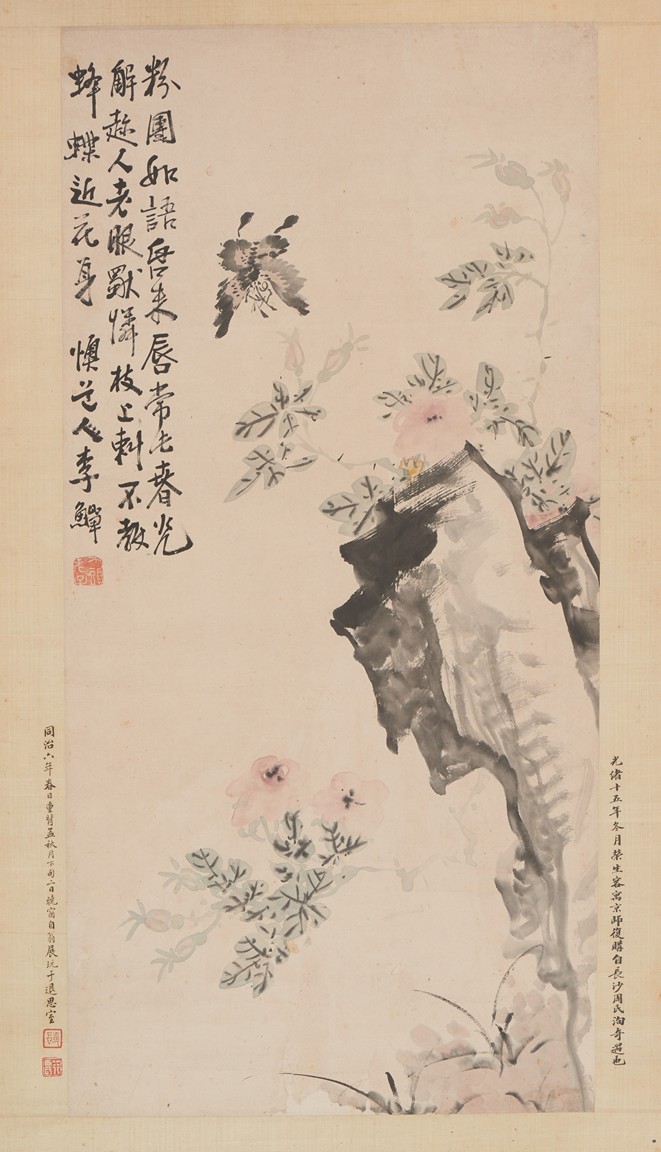 粉團如語啓朱唇常占春光
解趂人老眼憐枝上刺不教
蜂蝶近花身 懊道人李鱓
光緒十五年冬月榮生客寓京師復購自長沙周氏洵奇遇也
同治六年春日重孟秋月下旬二日曉窗自展玩于退思室